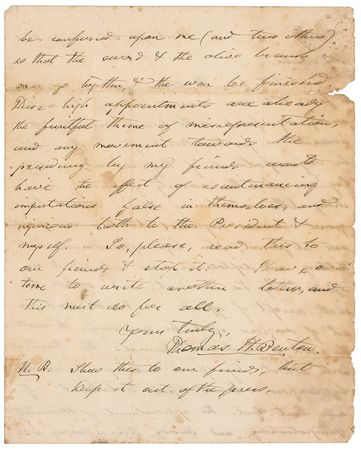 be conferred upon me (and two others)
is that the sword & the olive branch
may go together, & the war be finished.
These high appointments are already
the fruitful theme of misrepresentation,
and any movement towards the
presiding by my friends would
have the effect of countenancing
imputations false in themselves, and
injurious both to the President &
myself. So, please, read this to
our friends & stop it. I have no
time to write another letter, and
this must do for all.
Yours truly,
Thomas H. Benton.
N. B. Show this to our friends, but
keep it out of the press.